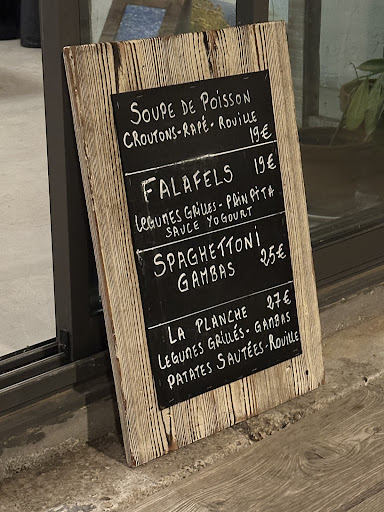 SOUPE DE POISSON
CROUTONS-RAPÉ-ROUILLE
19€
FALAFELS 19€
LEGUMES GRILLES-PAIN PITA
SAUCE YOGOURT
SPAGHETTONI
GAMBAS 25€
LA PLANCHE 27€
LEGUMES GRILLÉS-GAMBAS
PATATES SAUTÉES-ROUILLE